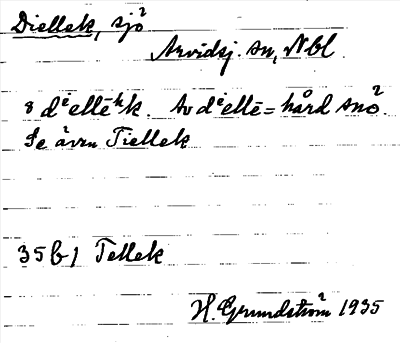 Diellek, sjö
Arvidsj. sn, Nbl.
8 dⁱellēʰk. Av dⁱellē = hård snö.
Se även Tiellek
35 b) Tellek
H. Grundström 1935